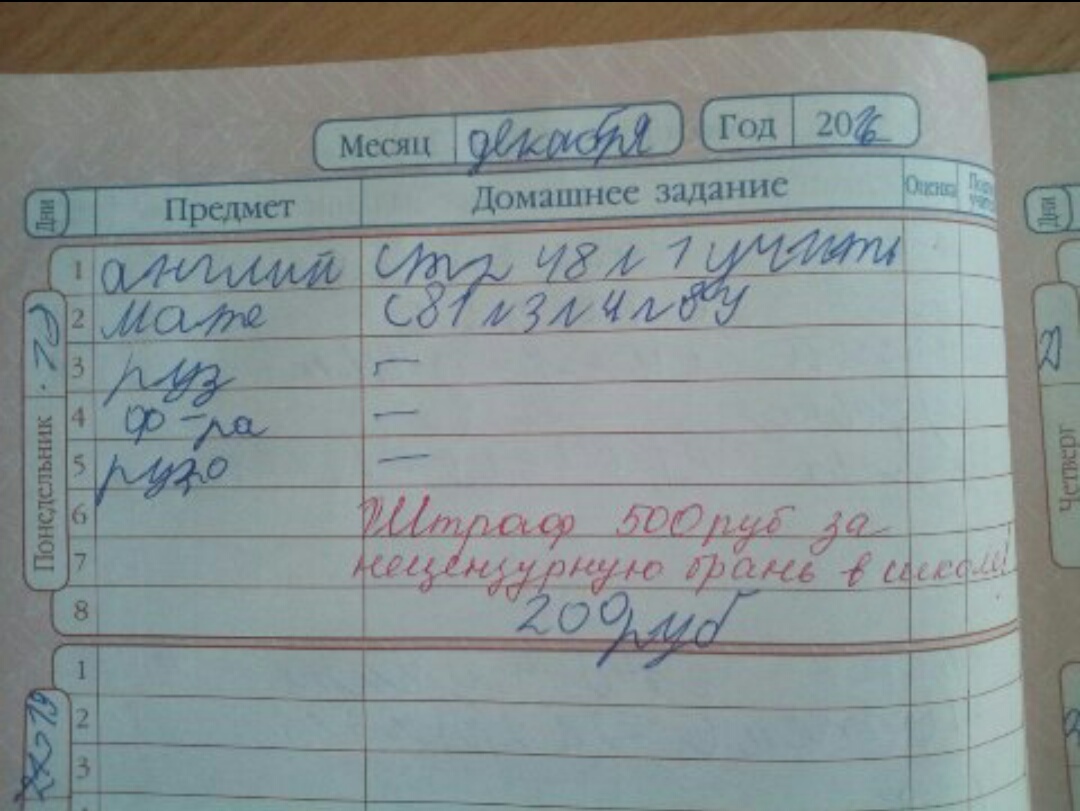 Месяц декабря Год 20
Дни Предмет Домашнее задание Оценка
Понедельник
1 англий стр 48 л 1 учить
2 мате с81 л3 л4 л8
3 руз —
4 ф-ра —
5 рузо —
6 Штраф 500 руб за
7 нецензурную брань в школе!
8 200 руб
1
2
3
Дни
Четверг